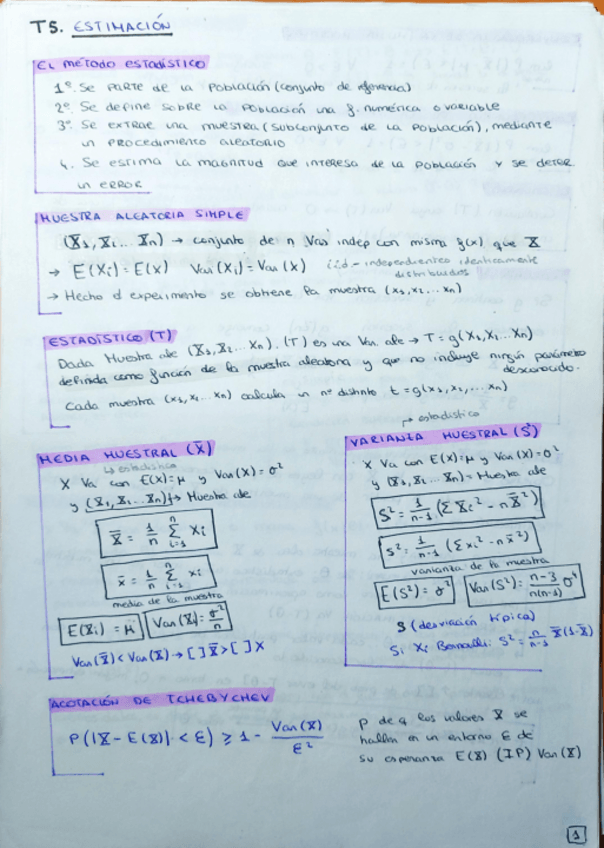 T5. ESTIMACIÓN
EL MÉTODO ESTADÍSTICO
1º. SE PARTE DE LA POBLACIÓN (CONJUNTO DE REFERENCIA)
2º. SE DEFINE SOBRE LA POBLACIÓN UNA f. NUMÉRICA O VARIABLE
3º. SE EXTRAE UNA MUESTRA (SUBCONJUNTO DE LA POBLACIÓN), MEDIANTE
UN PROCEDIMIENTO ALEATORIO
4. SE ESTIMA LA MAGNITUD QUE INTERESA DE LA POBLACIÓN Y SE DETER
UN ERROR
MUESTRA ALEATORIA SIMPLE
(X₁, X₂... Xn) → conjunto de n Vas indep con misma f(x) que X
→ E(Xi) = E(X) Var(Xi) = Var(X) iid - independientes identicamente
distribuidos
→ Hecho el experimento se obtiene la muestra (x₁, x₂, ... xn)
ESTADÍSTICO (T)
Dada Muestra ale (X₁, X₂ ... Xn). (T) es una Var. ale → T = g(X₁, X₂... Xn)
definida como función de la muestra aleatoria y que no incluye ningún parámetro
desconocido.
Cada muestra (x₁, x₂ ... xn) calcula un nº distinto t = g(x₁, x₂, ... xn)
MEDIA MUESTRAL (X̄)
↳ estadístico
X Va con E(X) = μ y Var(X) = σ²
y (X₁, X₂... Xn) → Muestra ale
X̄ = 1/n Σ(i=1, n) Xi
x̄ = 1/n Σ(i=1, n) xi
media de la muestra
Var(X̄) = σ²/n
Var(X̄) < Var(X) → [ ] X̄ > [ ] X
→ estadístico
VARIANZA MUESTRAL (S²)
X Va con E(X) = μ y Var(X) = σ²
y (X₁, X₂... Xn) = Muestra ale
S² = 1/n-1 (Σ Xi² - n X̄²)
s² = 1/n-1 (Σ xi² - n x̄²)
varianza de la muestra
E(S²) = σ² Var(S²) = n-3/n(n-1) σ⁴
S (desviación típica)
Si Xi Bernoulli: S² = n/n-1 X̄(1-X̄)
ACOTACIÓN DE TCHEBYCHEV
P(|X̄ - E(X̄)| < ε) ≥ 1 - Var(X̄)/ε²
P de q los valores X̄ se
hallen en un entorno ε de
su esperanza E(X̄) (IP) Var(X̄)
1